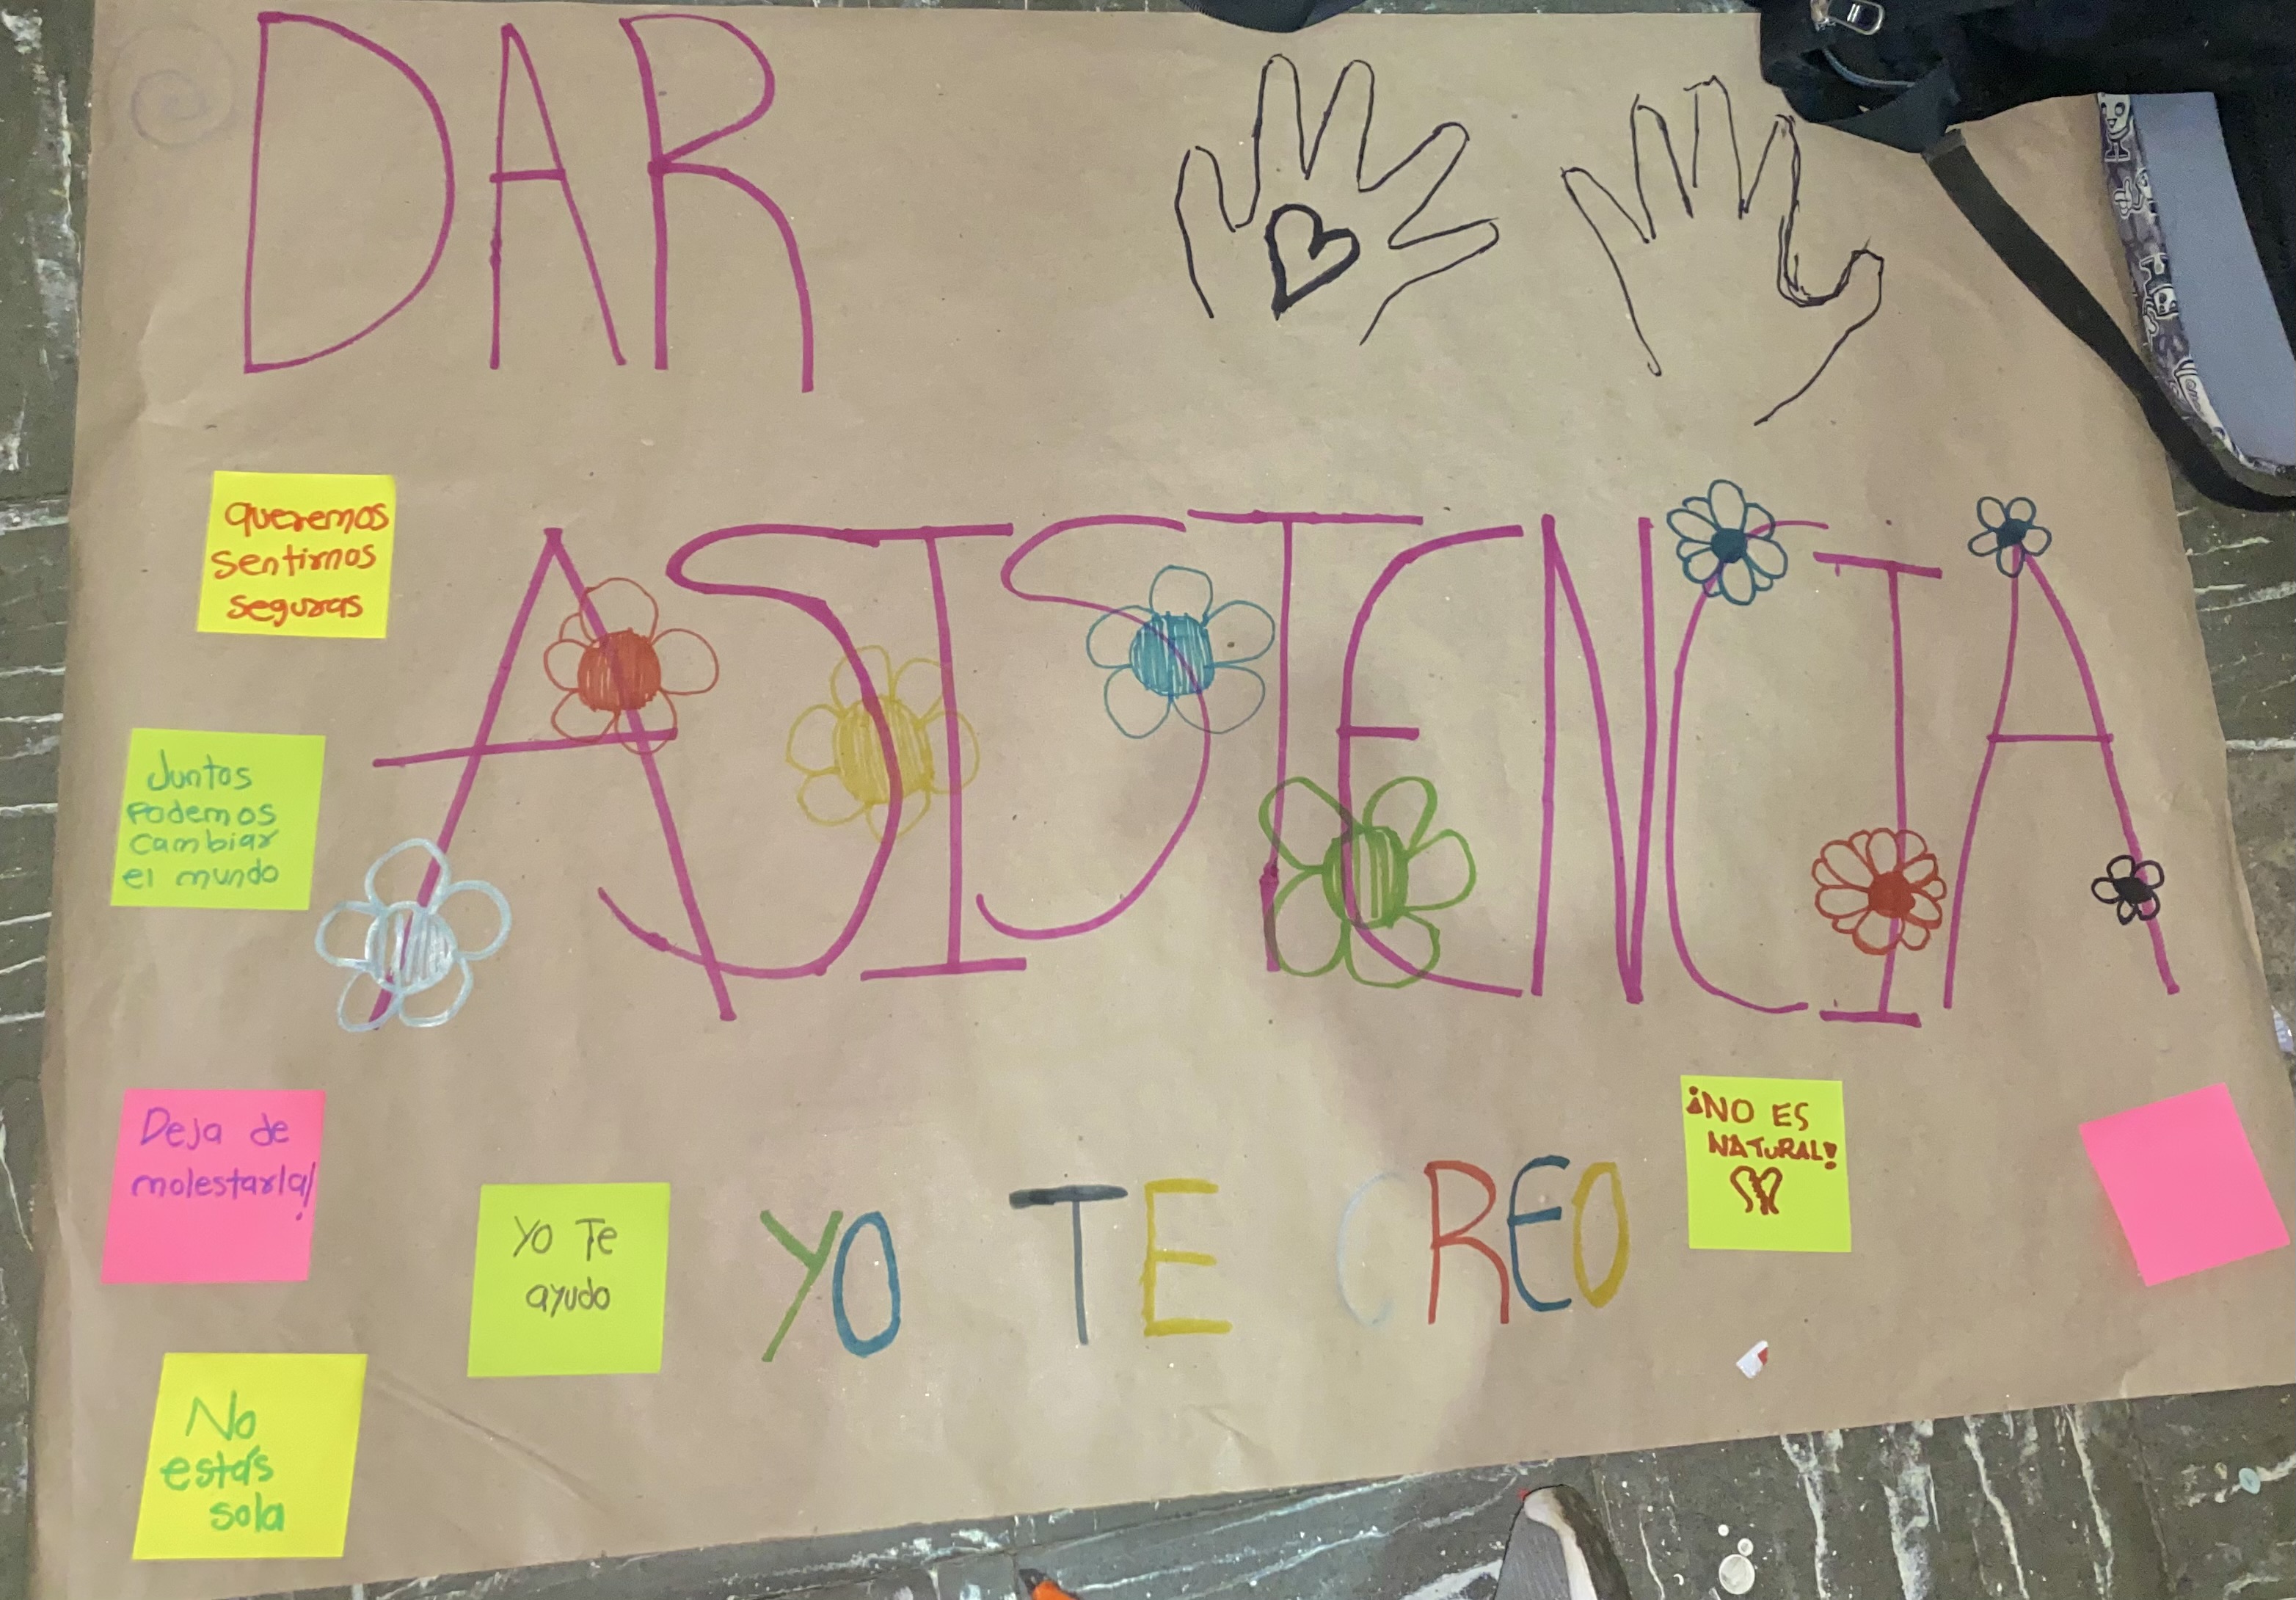 DAR
queremos
sentirnos
seguras
ASISTENCIA
Juntos
podemos
cambiar
el mundo
Deja de
molestarla!
Yo Te
ayudo
YO TE CREO
¡NO ES
NATURAL!
No
estás
sola